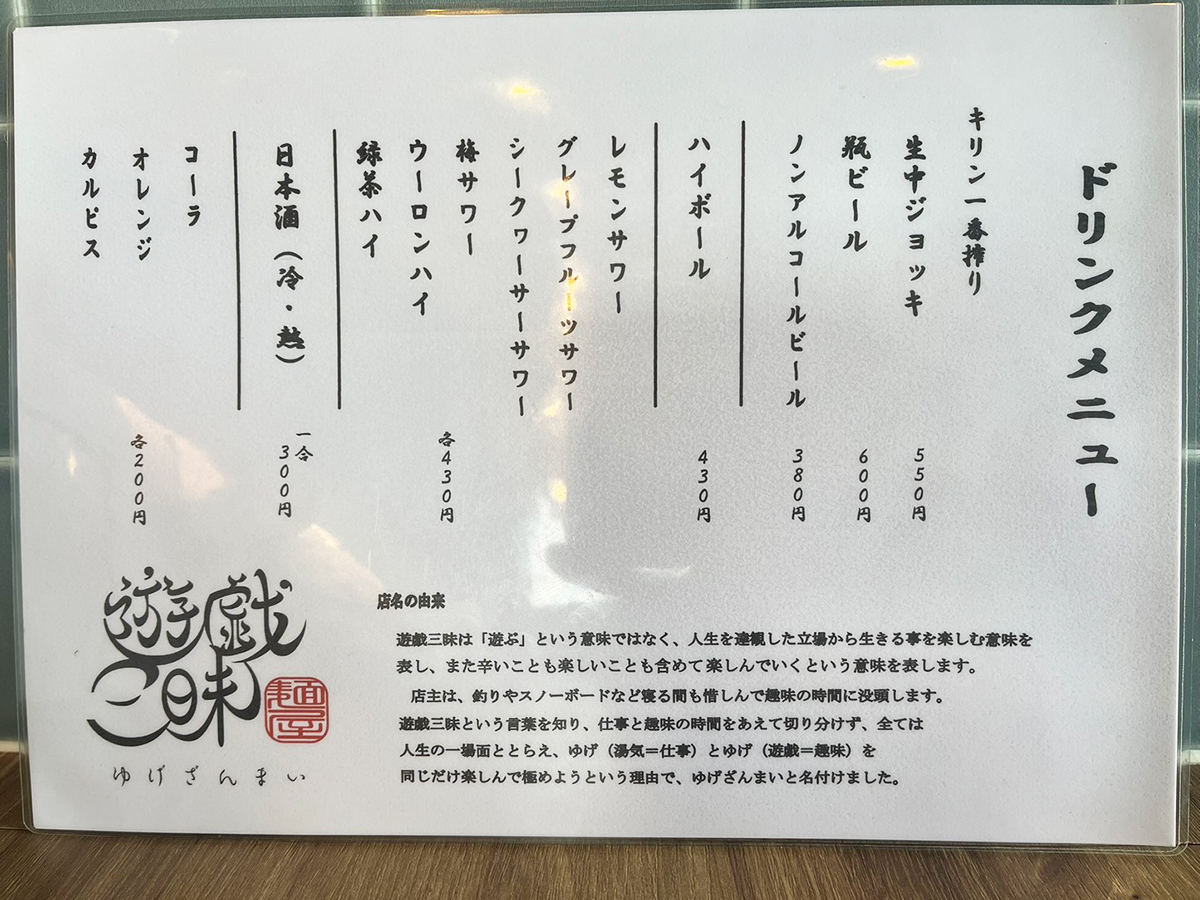 ドリンクメニュー
キリン一番搾り
生中ジョッキ 550円
瓶ビール 600円
ノンアルコールビール 380円
ハイボール 430円
レモンサワー
グレープフルーツサワー
シークワーサーサワー
梅サワー
ウーロンハイ
緑茶ハイ
各430円
日本酒（冷・熱）
一合
300円
コーラ
オレンジ
カルピス
各200円
遊戯
三昧
麺屋
ゆげざんまい
店名の由来
遊戯三昧は「遊ぶ」という意味ではなく、人生を達観した立場から生きる事を楽しむ意味を
表し、また辛いことも楽しいことも含めて楽しんでいくという意味を表します。
店主は、釣りやスノーボードなど寝る間も惜しんで趣味の時間に没頭します。
遊戯三昧という言葉を知り、仕事と趣味の時間をあえて切り分けず、全ては
人生の一場面ととらえ、ゆげ（湯気＝仕事）とゆげ（遊戯＝趣味）を
同じだけ楽しんで極めようという理由で、ゆげざんまいと名付けました。